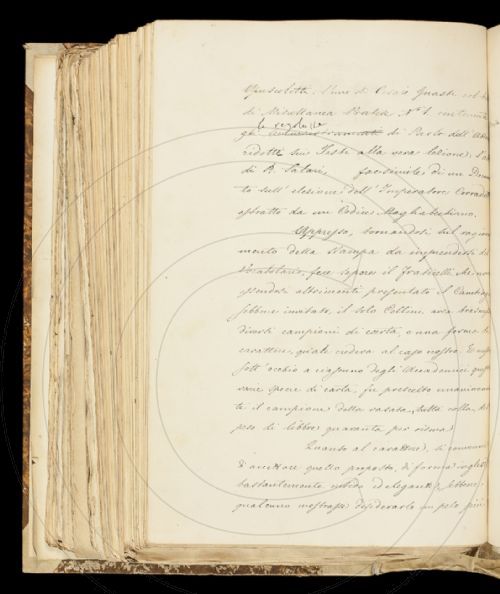 Opuscoletti: l'uno di Cesare Guasti col
di Miscellanea Pratese N° 1.
le regole
di Paolo dell'
ridotti sui Testi alla vera lezione; l'
di P. facsimile di un Docu
to sull'elezione dell'Imperatore Corrado
estratto da un Codice Magliabechiano.
Appresso, tornandosi sul ragiona
mento della stampa da imprendersi del
Vocabolario, fece sapere il Fraticelli che non
essendosi altrimenti presentato il Cambiagi
sebbene invitato, il solo Cellini avea
diversi campioni di carta, e una forma di
carattere, quale credeva al caso nostro. E
sott'occhio a ciascuno degli Accademici
varie specie di carta, fu prescelto unanimemen
te il campione della rasata, della colla, del
peso di libbre quaranta per risma.
Quanto al carattere, si convenne
d'accettare quello proposto, di forma inglese
bastantemente nitido ed elegante, sebbene
qualcuno mostrasse desiderarlo un pelo più